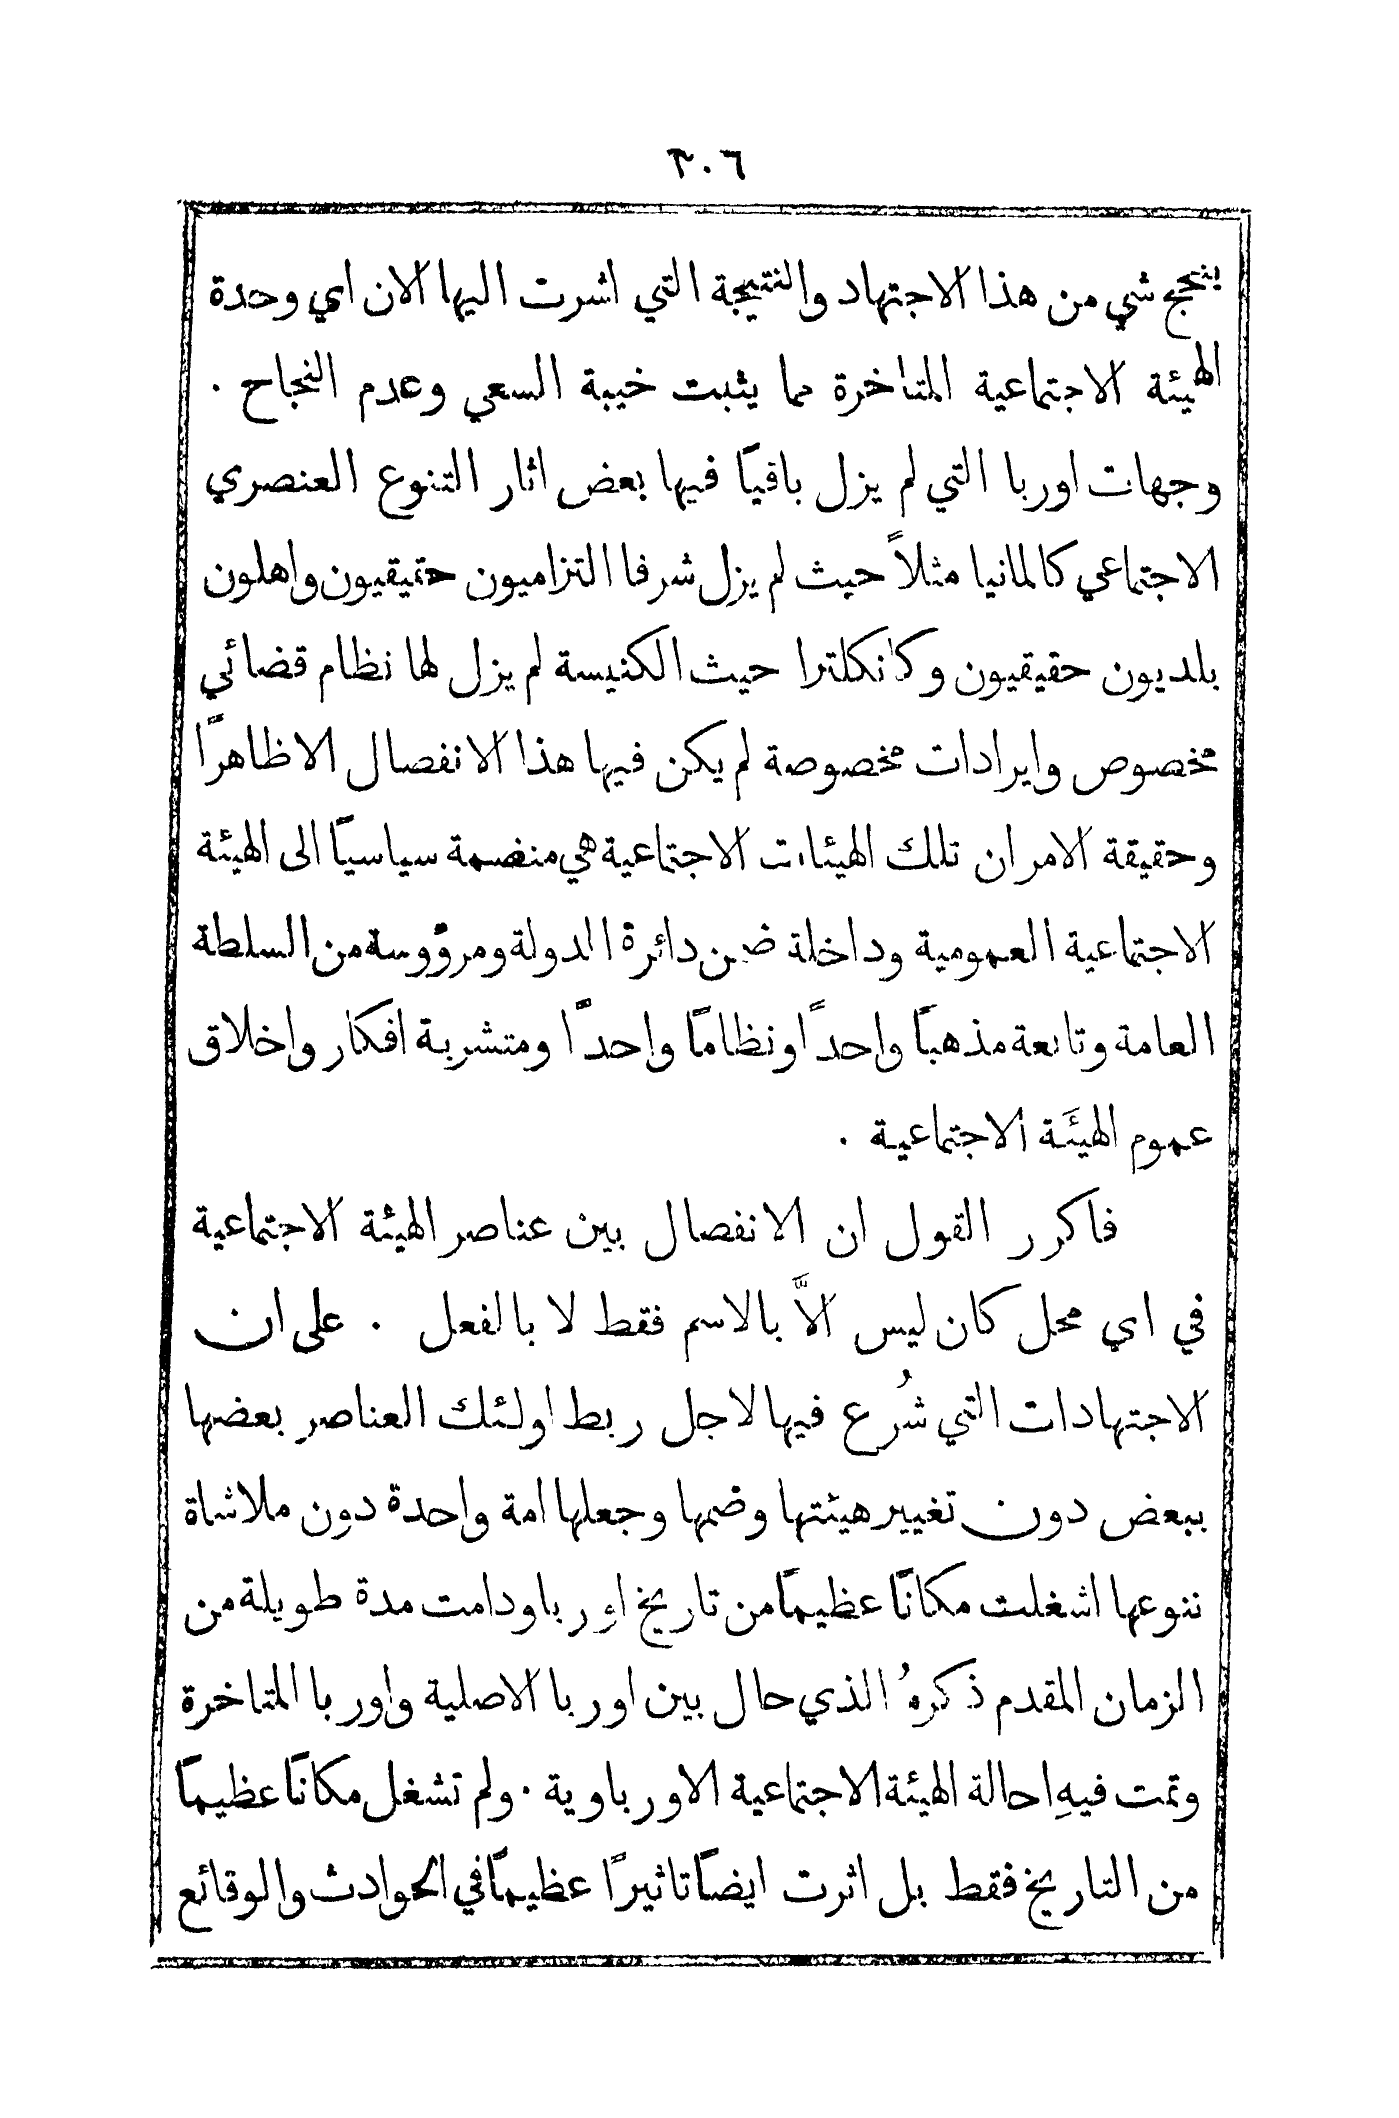 ٢٠٦
ينجح شي من هذا الاجتهاد والنتيجة التي اشرت اليها الان اي وحدة
الهيئة الاجتماعية المتاخرة مما يثبت خيبة السعي وعدم النجاح .
وجهات اوربا التي لم يزل باقيًا فيها بعض اثار التنوع العنصري
الاجتماعي كالمانيا مثلاً حيث لم يزل شرفا التزاميون حقيقيون واهلون
بلديون حقيقيون وكانكلترا حيث الكنيسة لم يزل لها نظام قضائي
مخصوص وايرادات مخصوصة لم يكن فيها هذا الانفصال الا ظاهرًا
وحقيقة الامر ان تلك الهيئات الاجتماعية هي منضمة سياسيًا الى الهيئة
الاجتماعية العمومية وداخلة ضمن دائرة الدولة ومرؤوسة من السلطة
العامة وتابعة مذهبًا واحدًا ونظامًا واحدًا ومتشربة افكار واخلاق
عموم الهيئَة الاجتماعية .
فاكرر القول ان الانفصال بين عناصر الهيئة الاجتماعية
في اي محل كان ليس الاَّ بالاسم فقط لا بالفعل . على ان
الاجتهادات التي شُرع فيها لاجل ربط اولئك العناصر بعضها
ببعض دون تغيير هيئتها وضمها وجعلها امة واحدة دون ملاشاة
تنوعها اشغلت مكانًا عظيمًا من تاريخ اوربا ودامت مدة طويلة من
الزمان المقدم ذكرهُ الذي حال بين اوربا الاصلية واوربا المتاخرة
وتمت فيهِ احالة الهيئة الاجتماعية الاورباوية . ولم تشغل مكانًا عظيمًا
من التاريخ فقط بل اثرت ايضًا تاثيرًا عظيمًا في الحوادث والوقائع